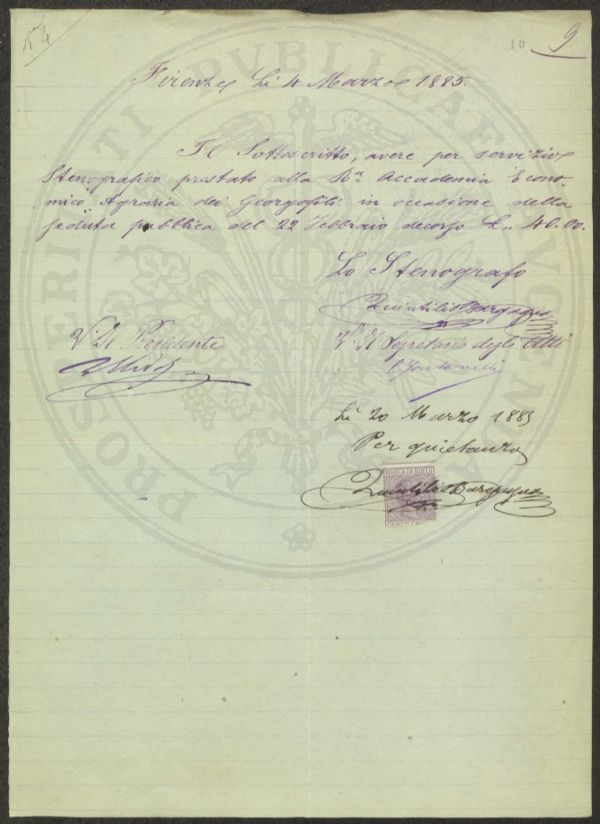 10 9
Firenze Li 4 Marzo 1885.
Il Sottoscritto, avere per servizio
Stenografico prestato alla Rª Accademia Econo-
mico Agraria dei Georgofili in occasione della
seduta pubblica del 22 Febbraio decorso L. 40.00.
Lo Stenografo
Quintilio
Vº Il Presidente
Vº Il Segretario degli Atti
Li 20 Marzo 1885
Per quietanza
MARCA DA BOLLO
Quintilio
PROSPERITATI PUBLICAE AUGENDAE